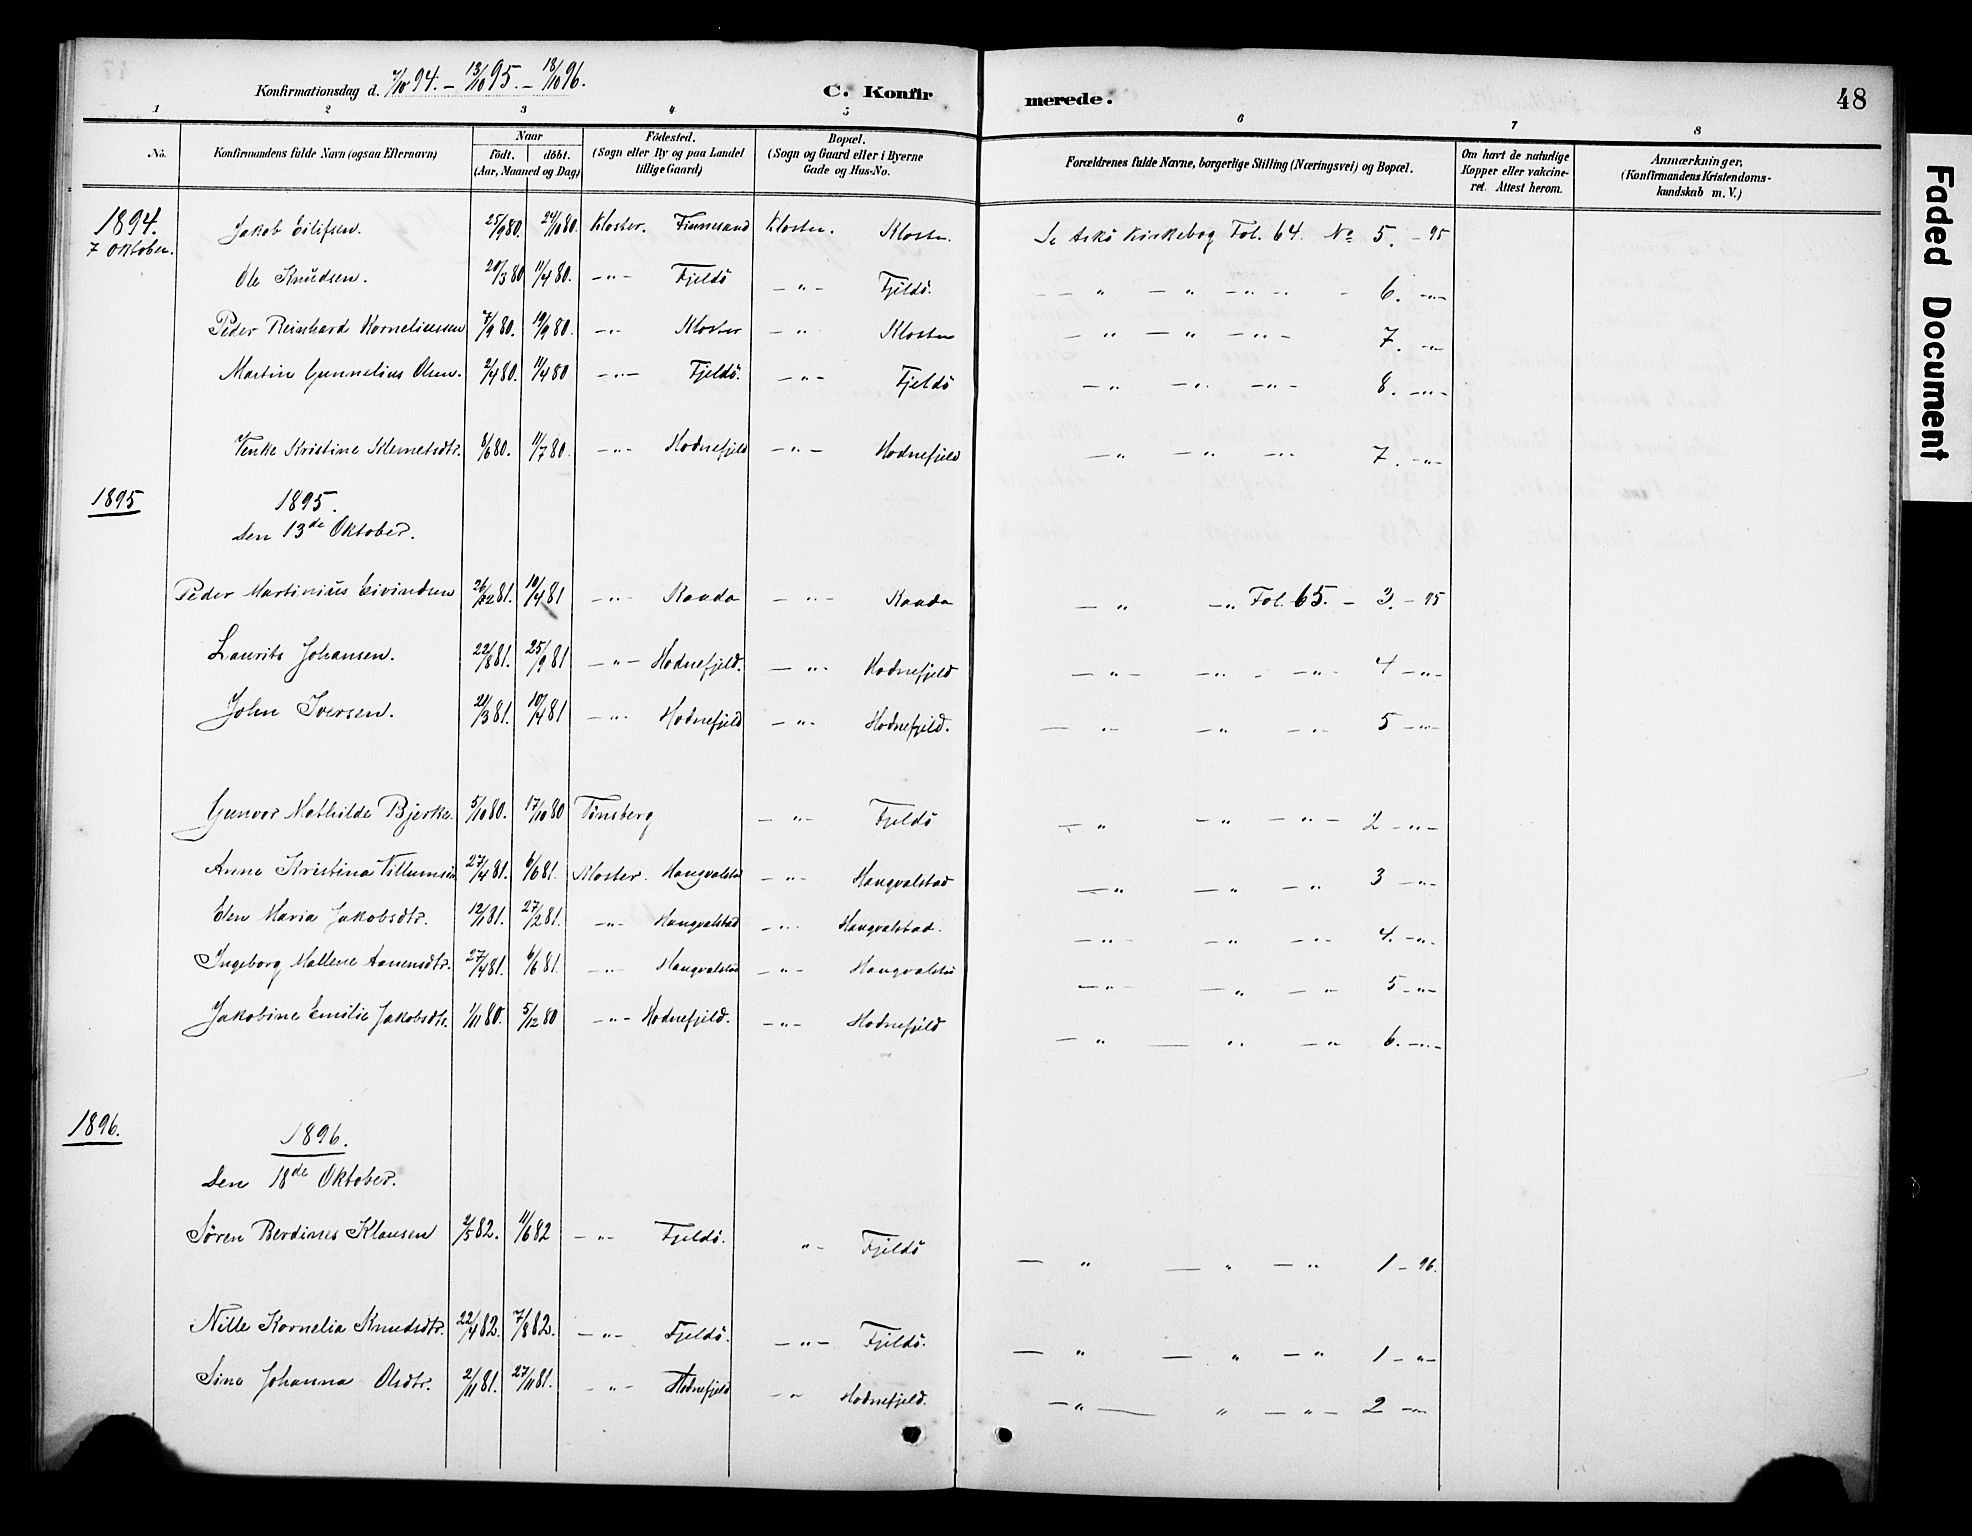 Konfirmationsdag d. 7/10 94. – 13/10 95. – 18/10 96.
C. Konfirmerede.
48
1 2 3 4 5 6 7 8
No.
Konfirmandens fulde Navn (ogsaa Efternavn)
Naar
födt. | döbt.
(Aar, Maaned og Dag)
Födested.
(Sogn eller By og paa Landet tillige Gaard)
Bopæl.
(Sogn og Gaard eller i Byerne Gade og Hus-No.
Forældrenes fulde Navne, borgerlige Stilling (Næringsvei) og Bopæl.
Om havt de naturlige Kopper eller vakcineret. Attest herom.
Anmærkninger,
(Konfirmandens Kristendomskundskab m. V.)
Faded Document
1894.
7 Oktober.
Jakob Eilifsen. 25/9 80. 24/10 80. Kloster. Finnesand Kloster. Kloster. Se Askö Kirkebog Fol. 64. No 5. – 95
Ole Knudsen. 20/3 80 11/4 80. – " – Fjeldö – " – Fjeldö. – " – " – " – 6. – " –
Peder Reinhard Korneliussen 7/9 80. 19/9 80. – " – Kloster – " – Kloster – " – " – " – 7. – " –
Martin Gunnelius Olsen. 2/4 80. 11/4 80 – " – Fjeldö. – " – Fjeldö – " – " – " – 8. – " –
Venke Kristine Klemetsdtr. 8/6 80. 11/7 80. – " – Hodnefjeld – " – Hodnefjeld – " – " – " – 7. – " –
1895 1895.
Den 13de Oktober.
Peder Martinius Eivindsen 26/2 81. 10/4 81 – " – Raada – " – Raada – " – " Fol. 65. – 3. – 95
Laurits Johansen. 22/8 81. 25/9 81 – " – Hodnefjeld. – " – Hodnefjeld – " – " – " – 4 – " –
John Iversen. 21/3 81. 10/4 81 – " – Hodnefjeld – " – Hodnefjeld. – " – " – " – 5 – " –
Gunvor Mathilde Bjerke. 5/10 80. 17/10 80 Tönsberg – " – Fjeldö – " – " – " – 2 – " –
Anne Kristina Villumsdtr 27/4 81. 6/6 81. Kloster. Haugvalstad – " – Haugvalstad – " – " – " 3 – " –
Elen Maria Jakobsdtr. 12/1 81. 27/2 81. – " – Haugvalstad – " – Haugvalstad. – " – " – " – 4. – " –
Ingeborg Mallene Aanensdtr. 27/4 81. 6/6 81. – " – Haugvalstad – " – Haugvalstad – " – " – " 5 – " –
Jakobine Emilie Jakobsdtr. 1/11 80. 5/12 80 – " – Hodnefjeld. – " – Hodnefjeld – " – " – " 6. – " –
1896. 1896.
Den 18de Oktober.
Sören Berdines Klausen 2/5 82. 11/6 82 – " – Fjeldö. " – Fjeldö – " – " – " 1 – 96.
Nille Kornelia Knudsdtr. 22/4 82. 7/8 82. – " – Fjeldö. – " – Fjeldö. – " – " – " 1 – " –
Sina Johanna Olsdtr. 2/11 81. 27/11 81. – " – Hodnefjeld – " – Hodnefjeld. – " – " – " – 2 – " –